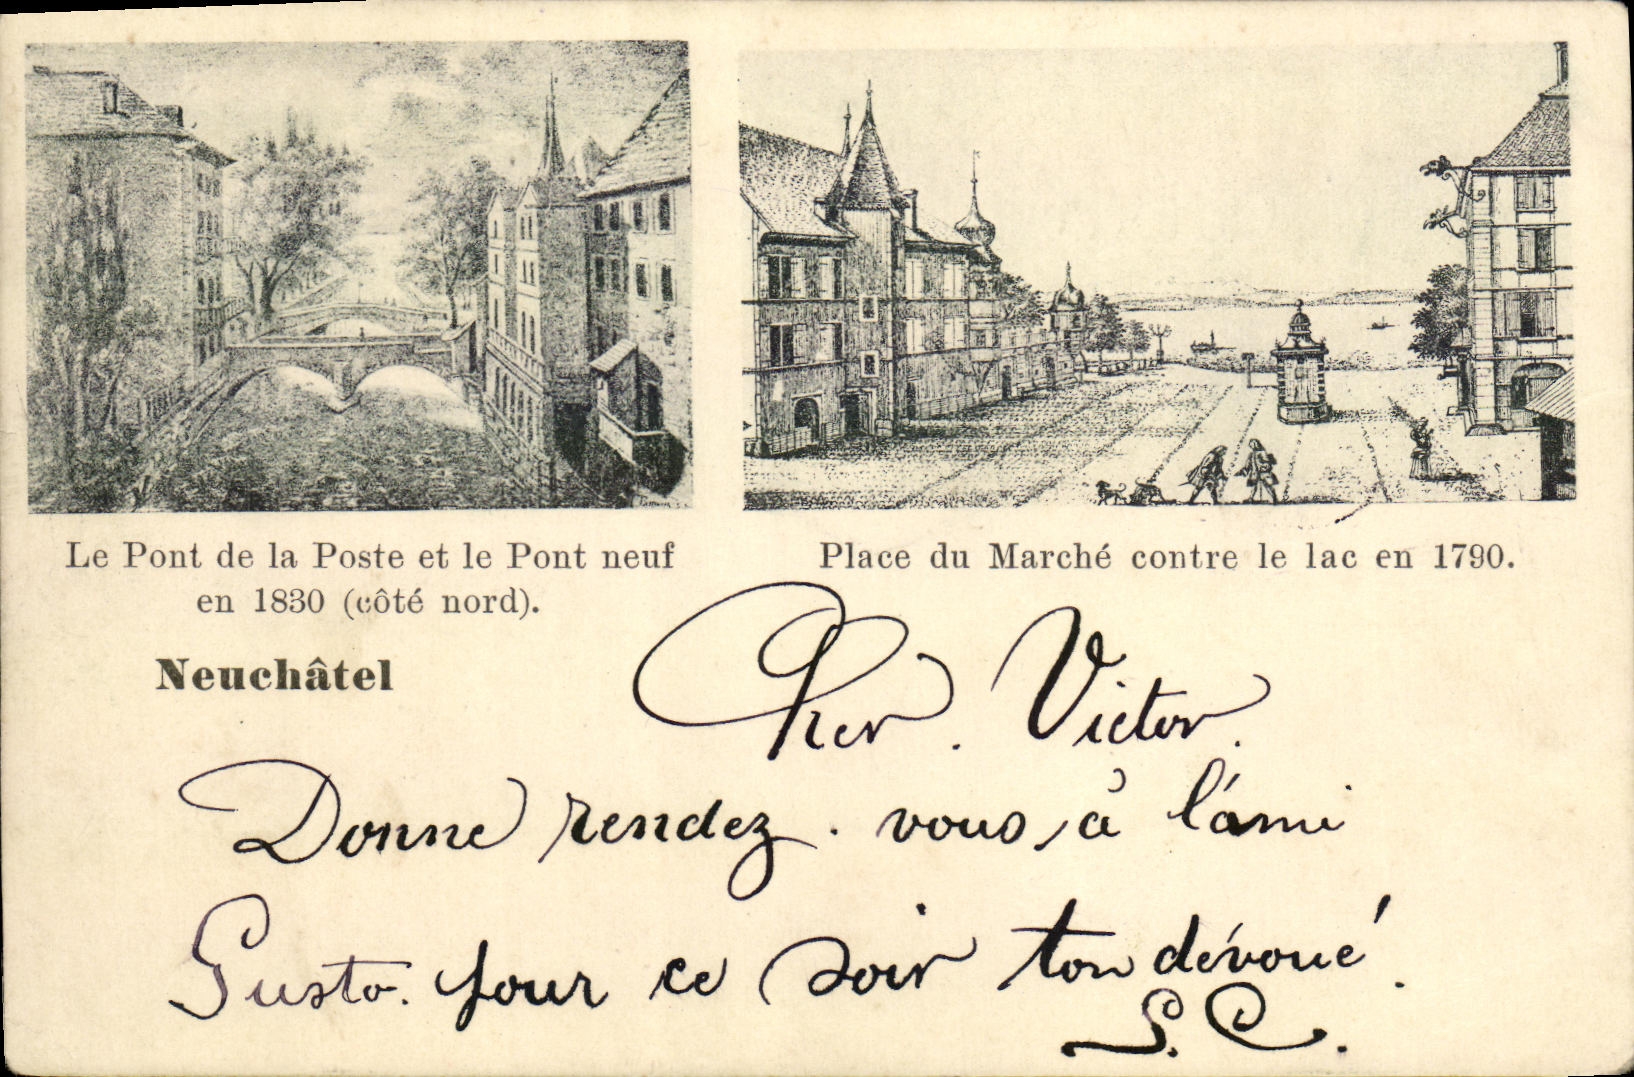 Le Pont de la Poste et le Pont neuf
en 1830 (côté nord).
Place du Marché contre le lac en 1790.
Neuchâtel
Cher. Victor.
Donne rendez-vous, à l'ami
Gusto. pour ce soir ton dévoué.
S. C.